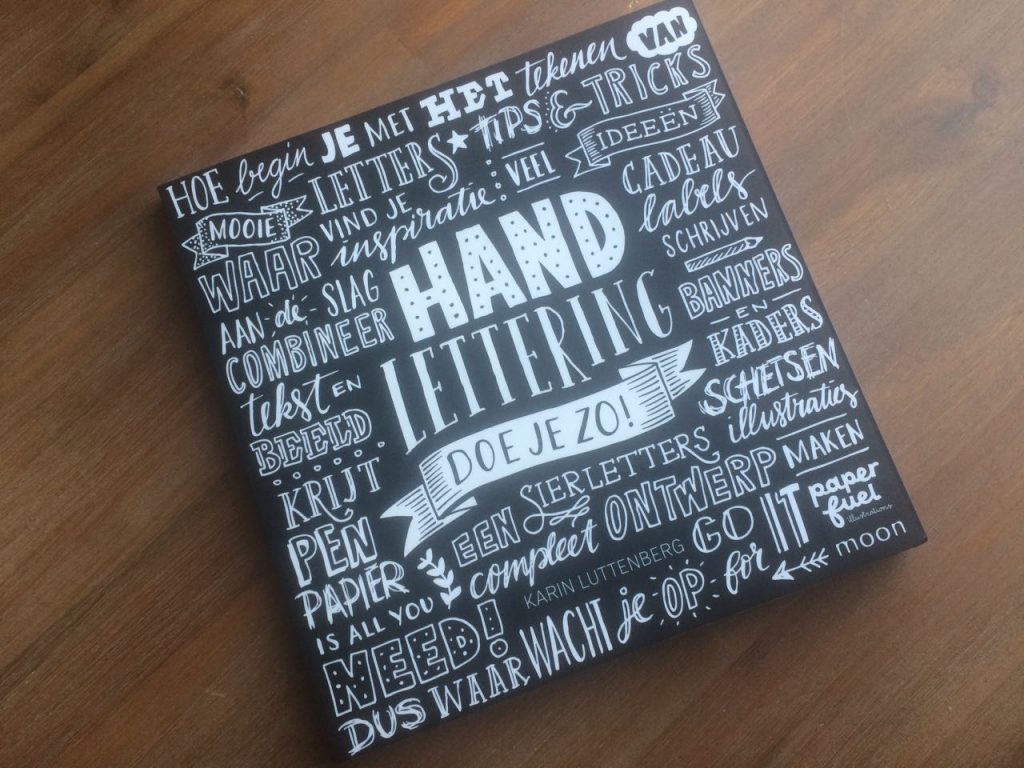 HOE begin JE MET HET tekenen VAN
MOOIE LETTERS★ TIPS & TRICKS
WAAR VIND JE inspiratie: VEEL IDEEËN
AAN de SLAG
COMBINEER
tekst EN
BEELD
KRIJT
PEN
PAPIER
IS ALL YOU
NEED!
HAND
LETTERING
DOE JE ZO!
CADEAU
labels
SCHRIJVEN
BANNERS
EN
KADERS
SCHETSEN
illustraties
MAKEN
EEN SIERLETTERS
compleet ONTWERP
KARIN LUTTENBERG
GO for IT
paper
fuel
illustrations
moon
DUS WAAR WACHT je OP